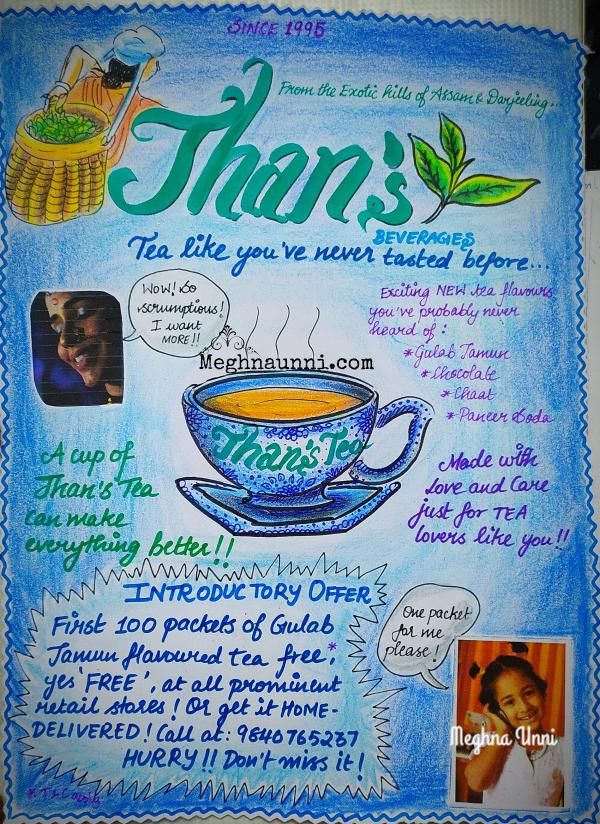 SINCE 1995
From the Exotic hills of Assam & Darjeeling...
Than's
BEVERAGES
Tea like you've never tasted before...
WOW! So
scrumptious!
I want
MORE!!
Exciting NEW tea flavours
you've probably never
heard of:
*Gulab Jamun
*Chocolate
*Chaat
*Paneer Soda
Meghnaunni.com
Than's Tea
A cup of
Than's Tea
can make
everything better!!
Made with
love and care
just for TEA
lovers like you!!
INTRODUCTORY OFFER
First 100 packets of Gulab
Jamun flavoured tea free,*
yes 'FREE', at all prominent
retail stores! Or get it HOME-
DELIVERED! Call at: 9840765237
HURRY!! Don't miss it!
* T & C apply
One packet
for me
please!
Meghna Unni